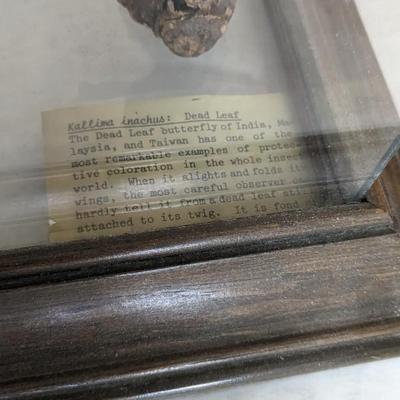 Kallima inachus: Dead Leaf
The Dead Leaf butterfly of India, Ma
laysia, and Taiwan has one of the
most remarkable examples of protec-
tive coloration in the whole insec
world. When it alights and folds it
wings, the most careful observer
hardly tell it from a dead leaf
attached to its twig. It is fon